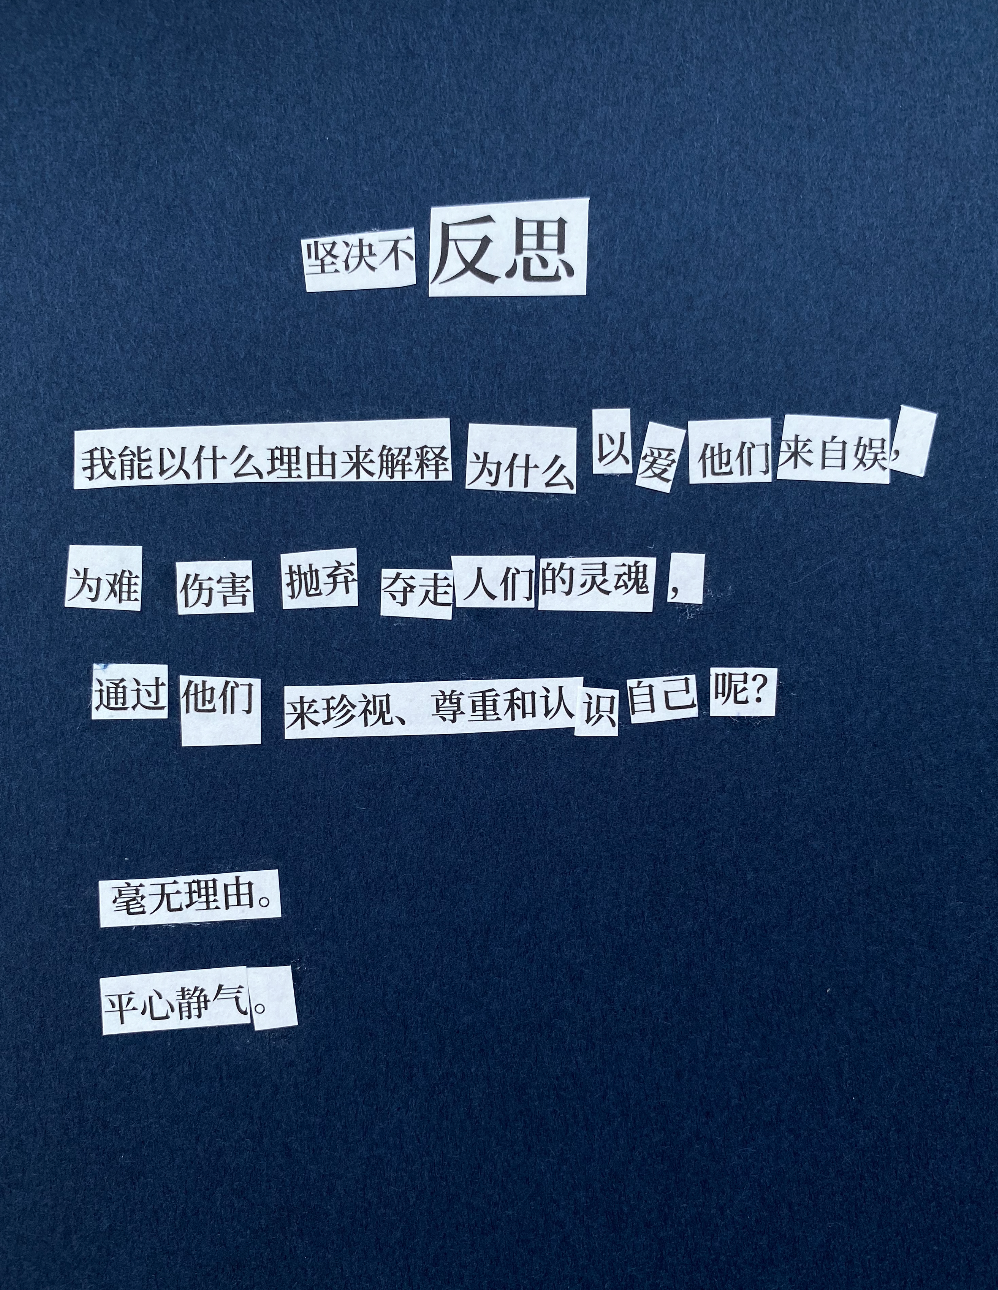 坚决不反思
我能以什么理由来解释为什么以爱他们来自娱，
为难 伤害 抛弃 夺走人们的灵魂，
通过他们 来珍视、尊重和认识自己呢？
毫无理由。
平心静气。